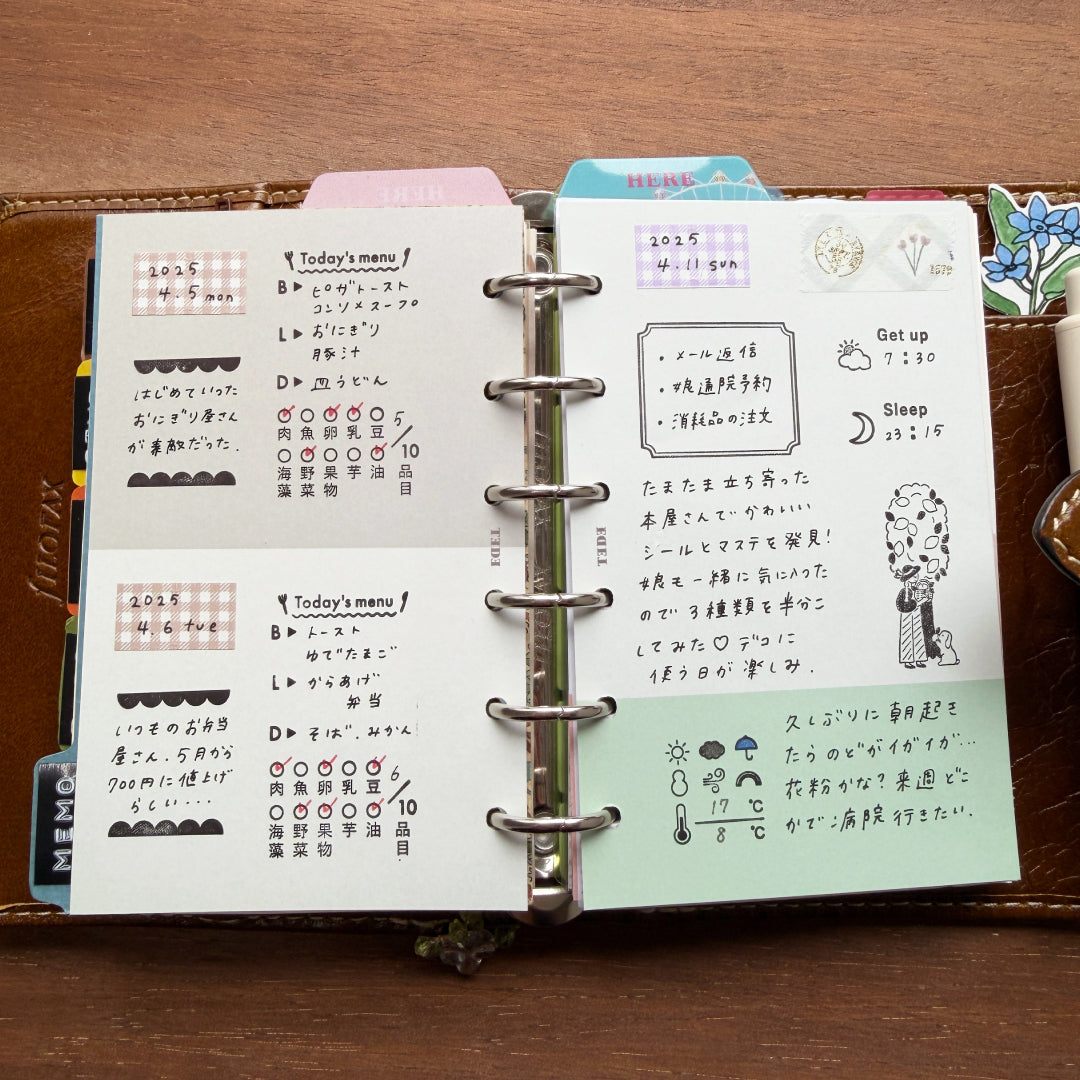 HERE
2025
4.5 mon
Today's menu
B▶ピザトースト
コンソメスープ
L▶おにぎり
豚汁
D▶皿うどん
はじめていった
おにぎり屋さん
が素敵だった.
肉 魚 卵 乳 豆
海藻 野菜 果物 芋 油
5/10品目
2025
4.6 tue
Today's menu
B▶トースト
ゆでたまご
L▶からあげ
弁当
D▶そば.みかん
いつものお弁当
屋さん.5月から
700円に値上げ
らしい...
肉 魚 卵 乳 豆
海藻 野菜 果物 芋 油
6/10品目
MEMO
filofax
HERE
2025
4.11 sun
・メール返信
・娘通院予約
・消耗品の注文
Get up
7:30
Sleep
23:15
たまたま立ち寄った
本屋さんでかわいい
シールとマステを発見!
娘も一緒に気に入った
ので3種類を半分こ
してみた♡デコに
使う日が楽しみ.
17℃
8℃
久しぶりに朝起き
たらのどがイガイガ...
花粉かな?来週どこ
かで病院行きたい.